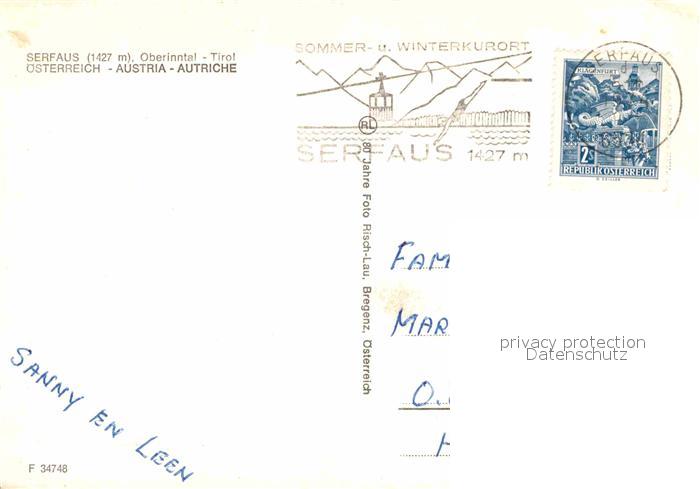 SERFAUS (1427 m), Oberinntal - Tirol
ÖSTERREICH - AUSTRIA - AUTRICHE
SOMMER- u. WINTERKURORT
SERFAUS 1427 m
SERFAUS
KLAGENFURT
2S
REPUBLIK ÖSTERREICH
RL
80 Jahre Foto Risch-Lau, Bregenz, Österreich
FAM
MAR
O.
privacy protection
Datenschutz
SANNY EN LEEN
F 34748